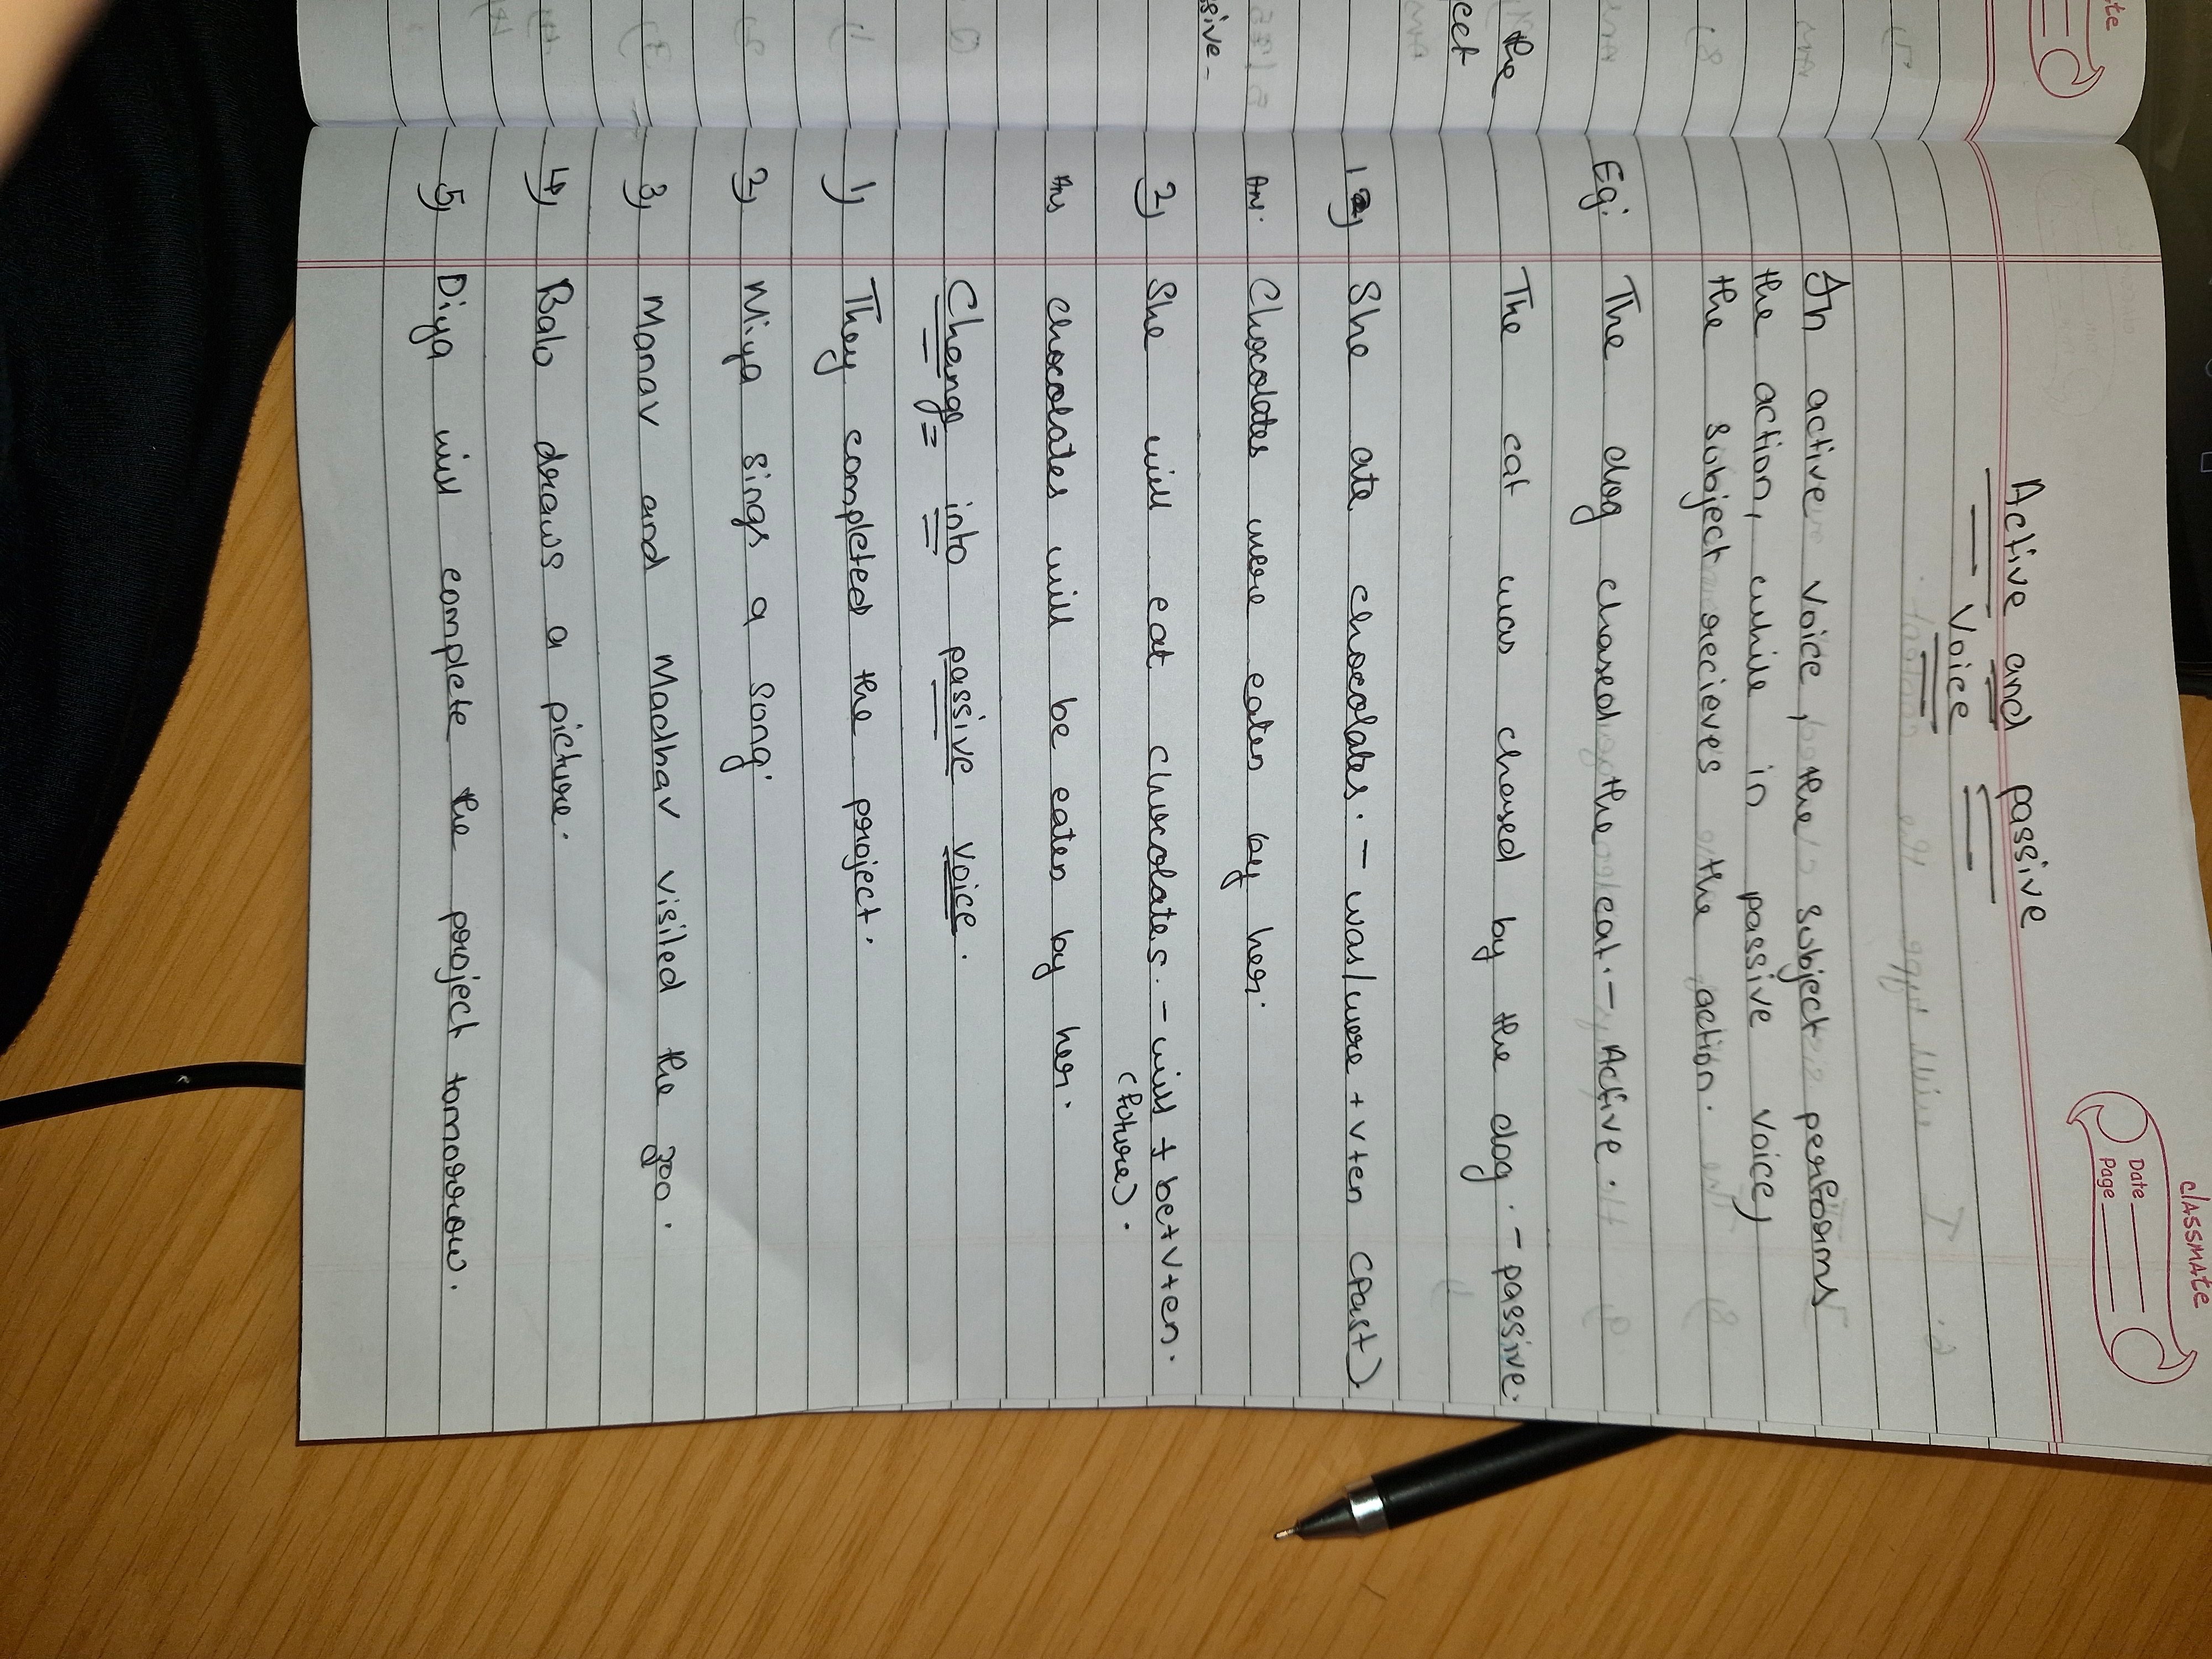 classmate
Date
Page
Active and passive
Voice
In active voice, the subject performs
the action, while in passive voice,
the subject recieves the action.
Eg: The dog chased the cat. - Active.
The cat was chased by the dog. - passive.
1) She ate chocolates. - was/were + v+en (Past)
Ans. Chocolates were eaten by her.
2) She will eat chocolates. - will + be+v+en.
(future).
Ans chocolates will be eaten by her.
Change into passive voice.
1) They completed the project.
2) Miya sings a song.
3) Manav and Madhav visited the zoo.
4) Balo draws a picture.
5) Diya will complete the project tomorrow.
the
ect
sive -